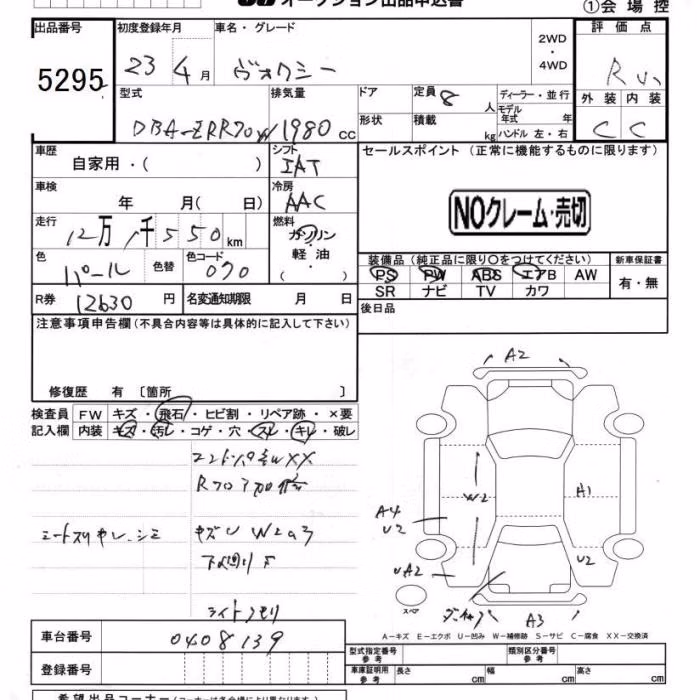 オークション出品申込書
①会場控
出品番号 初度登録年月 車名・グレード 2WD・4WD 評価点
5295 23年4月 ヴォクシー
型式 排気量 ドア 定員 8人 ディーラー・並行 外装 内装
DBA-ZRR70W 1980cc 形状 積載 kg モデル年式 年 ハンドル 左・右 C C
車歴 シフト セールスポイント (正常に機能するものに限ります)
自家用・( ) IAT
車検 冷房
年 月( 日) AAC
NOクレーム・売切
走行 燃料
12万1千550km ガソリン・軽油・( )
色 色替 色コード 装備品(純正品に限り○をつけてください) 新車保証書
パール 070 PS PW ABS エアB AW 有・無
SR ナビ TV カワ
R券 12630円 名変通知期限 月 日 後日品
注意事項申告欄(不具合内容等は具体的に記入して下さい)
A2
修復歴 有 〔箇所 〕
検査員 FW キズ・飛石・ヒビ割・リペア跡・×要
記入欄 内装 キズ・汚レ・コゲ・穴・スレ・キレ・破レ
XX
W2 A1
A4
U2
シートスリキレ・シミ キズU W2あり
下回りサ
UA2 U2
ライトクモリ
スペア A3
A−キズ E−エクボ U−凹み W−補修跡 S−サビ C−腐食 XX−交換済
車台番号 0408139 型式指定番号 参考 類別区分番号 参考
登録番号 車庫証明用 参考 長さ cm 幅 cm 高さ cm
希望出品コーナー